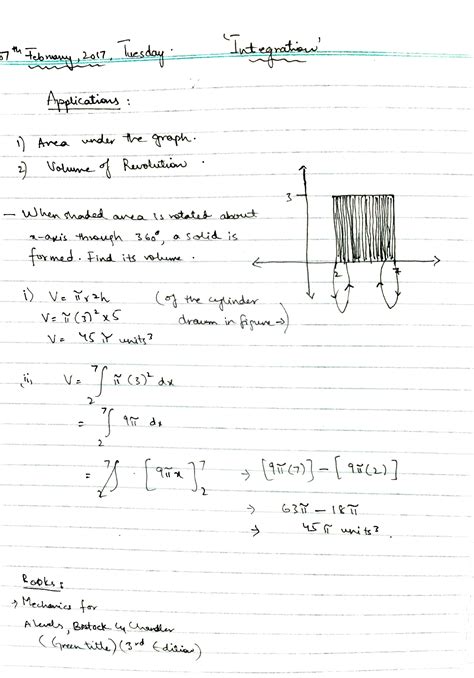 07th February, 2017, Tuesday. 'Integration'
Applications :
1) Area under the graph.
2) Volume of Revolution .
— When shaded area is rotated about
x-axis through 360°, a solid is
formed. Find its volume .
3
2 7
i) V = πr²h (of the cylinder
V = π(3)² x 5 drawn in figure →)
V = 45 π units³
ii, V = ₂⁷∫ π (3)² dx
= ₂⁷∫ 9π dx
= ₂⁷∫ . [9πx]₂⁷ → [9π(7)] – [9π(2)]
→ 63π – 18π
→ 45 π units³.
Books :
→ Mechanics for
A levels, Bostock & Chandler
(Green title) (3rd Edition)